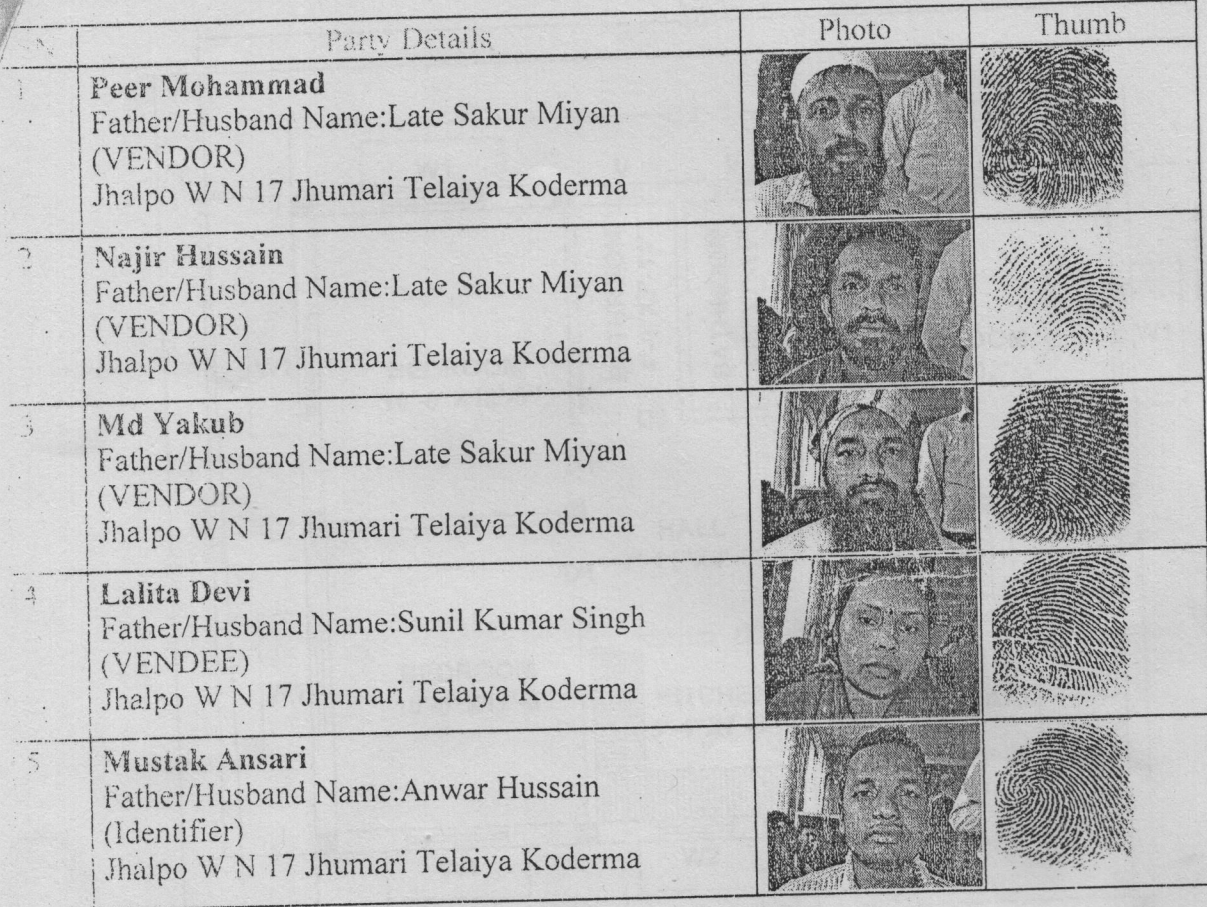 SN Party Details Photo Thumb
1 Peer Mohammad
Father/Husband Name:Late Sakur Miyan
(VENDOR)
Jhalpo W N 17 Jhumari Telaiya Koderma
2 Najir Hussain
Father/Husband Name:Late Sakur Miyan
(VENDOR)
Jhalpo W N 17 Jhumari Telaiya Koderma
3 Md Yakub
Father/Husband Name:Late Sakur Miyan
(VENDOR)
Jhalpo W N 17 Jhumari Telaiya Koderma
4 Lalita Devi
Father/Husband Name:Sunil Kumar Singh
(VENDEE)
Jhalpo W N 17 Jhumari Telaiya Koderma
5 Mustak Ansari
Father/Husband Name:Anwar Hussain
(Identifier)
Jhalpo W N 17 Jhumari Telaiya Koderma